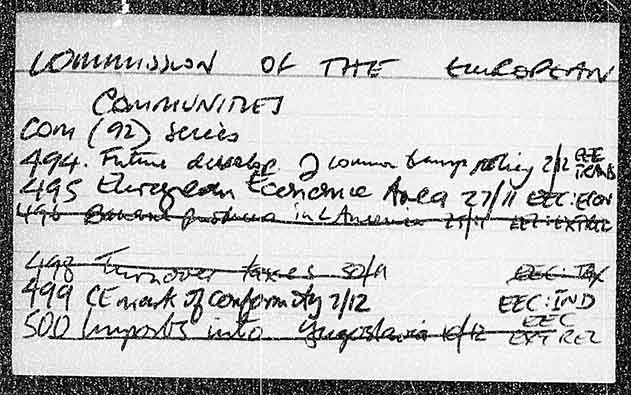 COMMISSION OF THE EUROPEAN
COMMUNITIES
COM (92) series
494. Future develop. of common transp policy 2/12 EEC TRANS
495 European Economic Area 27/11 EEC: ECON
496 Banana producers in L America EEC: EXTREL
498 Turnover taxes 30/11 EEC: TAX
499 CE mark of conformity 2/12 EEC: IND
500 Imports into Yugoslavia 10/12 EEC EXTREL